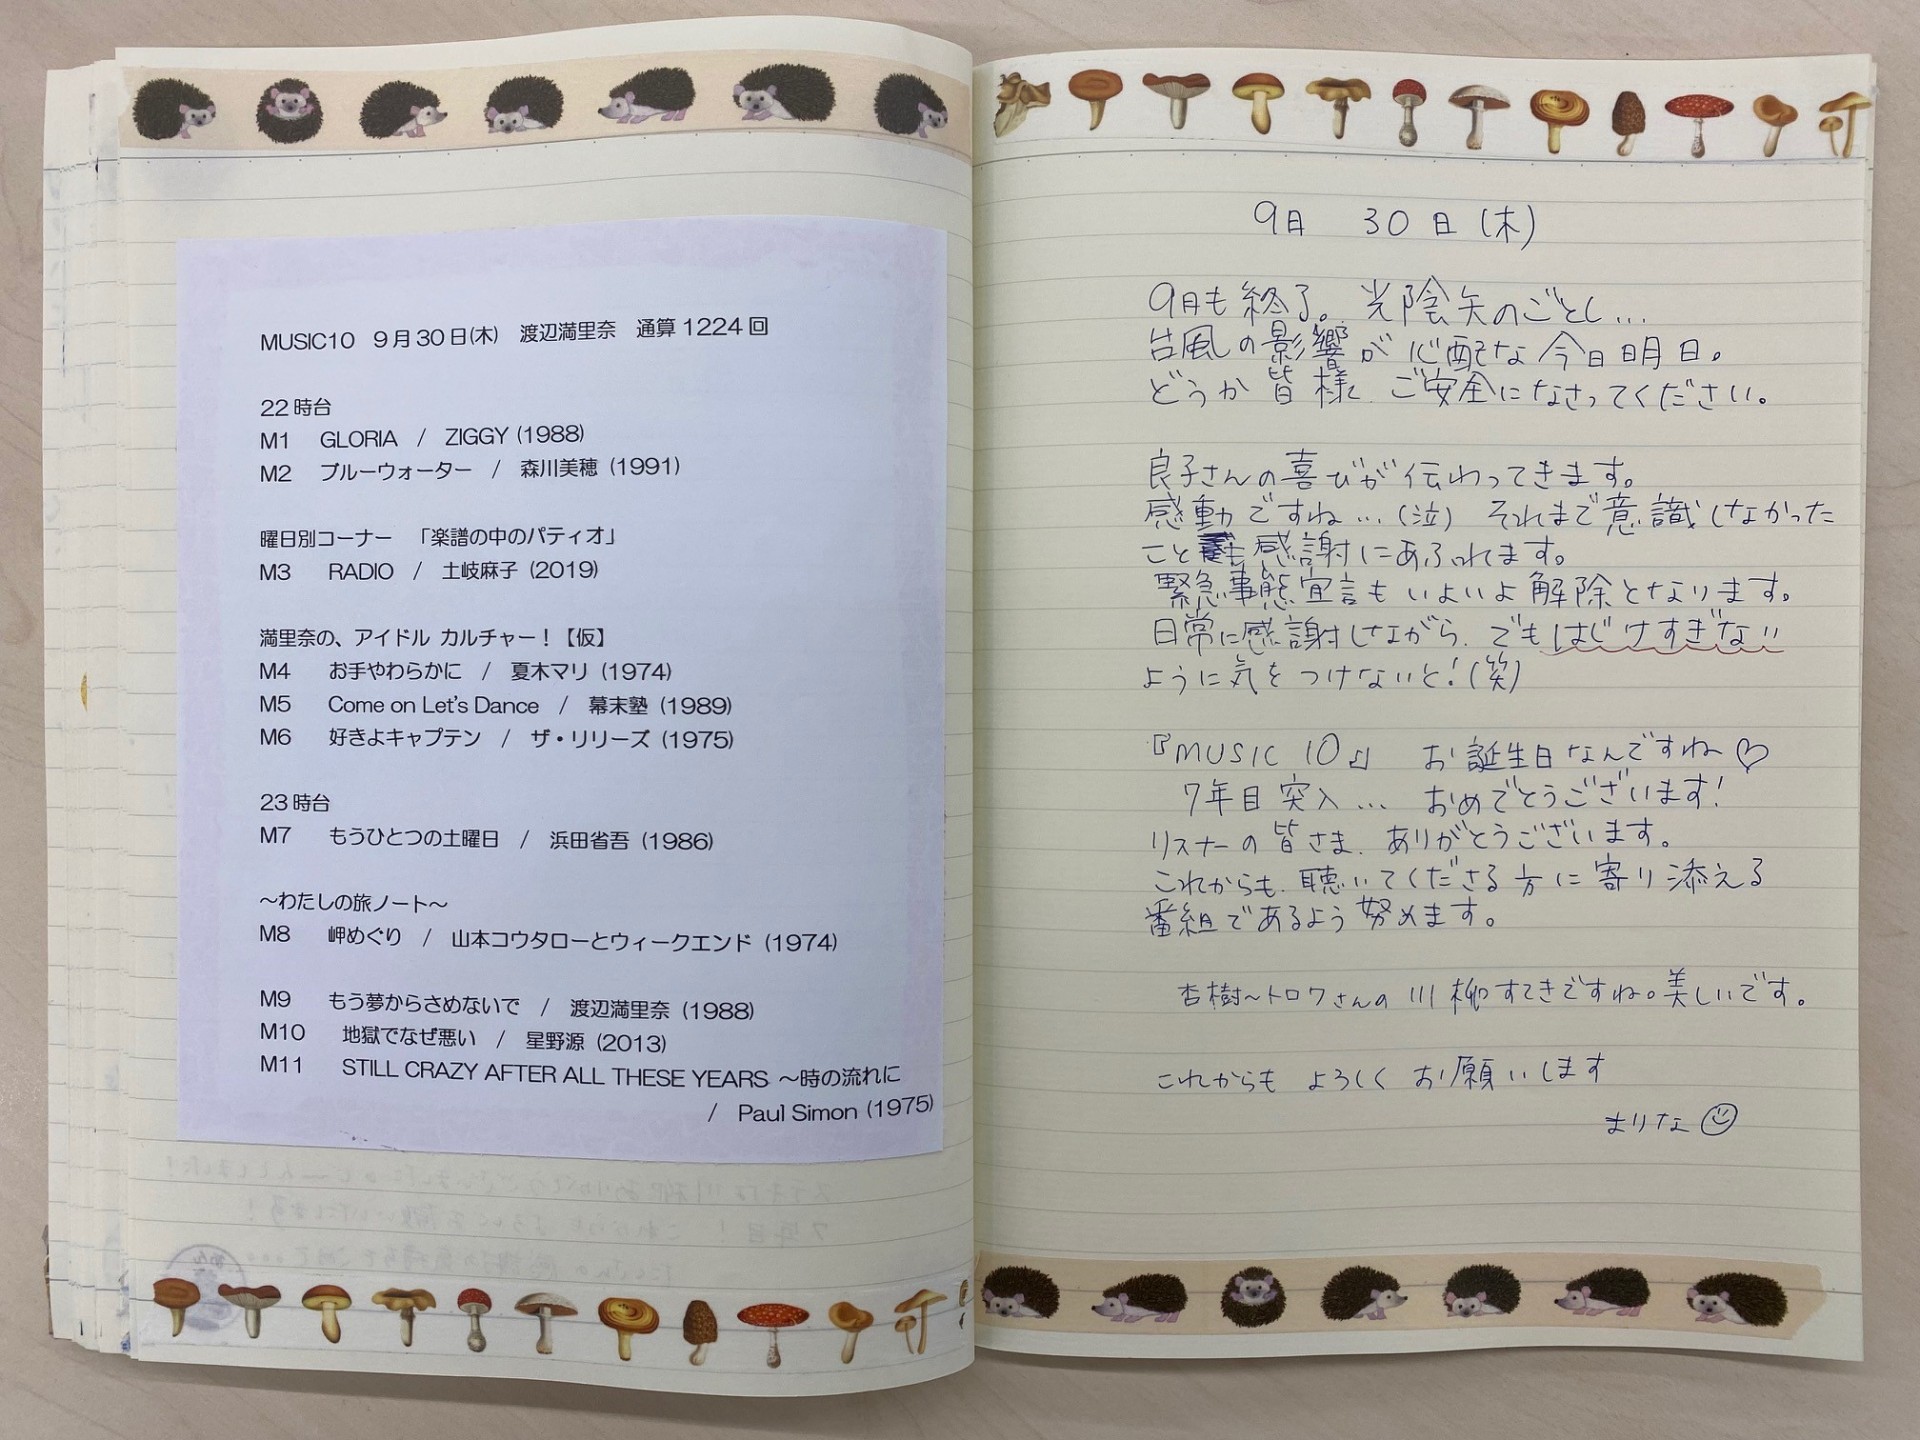 MUSIC10 9月30日(木) 渡辺満里奈 通算1224回
22時台
M1 GLORIA / ZIGGY (1988)
M2 ブルーウォーター / 森川美穂 (1991)
曜日別コーナー 「楽譜の中のパティオ」
M3 RADIO / 土岐麻子 (2019)
満里奈の、アイドル カルチャー！【仮】
M4 お手やわらかに / 夏木マリ (1974)
M5 Come on Let's Dance / 幕末塾 (1989)
M6 好きよキャプテン / ザ・リリーズ (1975)
23時台
M7 もうひとつの土曜日 / 浜田省吾 (1986)
～わたしの旅ノート～
M8 岬めぐり / 山本コウタローとウィークエンド (1974)
M9 もう夢からさめないで / 渡辺満里奈 (1988)
M10 地獄でなぜ悪い / 星野源 (2013)
M11 STILL CRAZY AFTER ALL THESE YEARS ～時の流れに
/ Paul Simon (1975)
9月 30日(木)
9月も終了。光陰矢のごとし…
台風の影響が心配な今日明日。
どうか皆様、ご安全になさってください。
良子さんの喜びが伝わってきます。
感動ですね…(泣) それまで意識しなかった
こと も感謝にあふれます。
緊急事態宣言もいよいよ解除となります。
日常に感謝しながら、でもはじけすぎない
ように気をつけないと！(笑)
『MUSIC 10』 お誕生日なんですね♡
7年目突入… おめでとうございます！
リスナーの皆さま、ありがとうございます。
これからも、聴いてくださる方に寄り添える
番組であるよう努めます。
杏樹〜トロワさんの川柳すてきですね。美しいです。
これからも よろしく お願いします
まりな☺